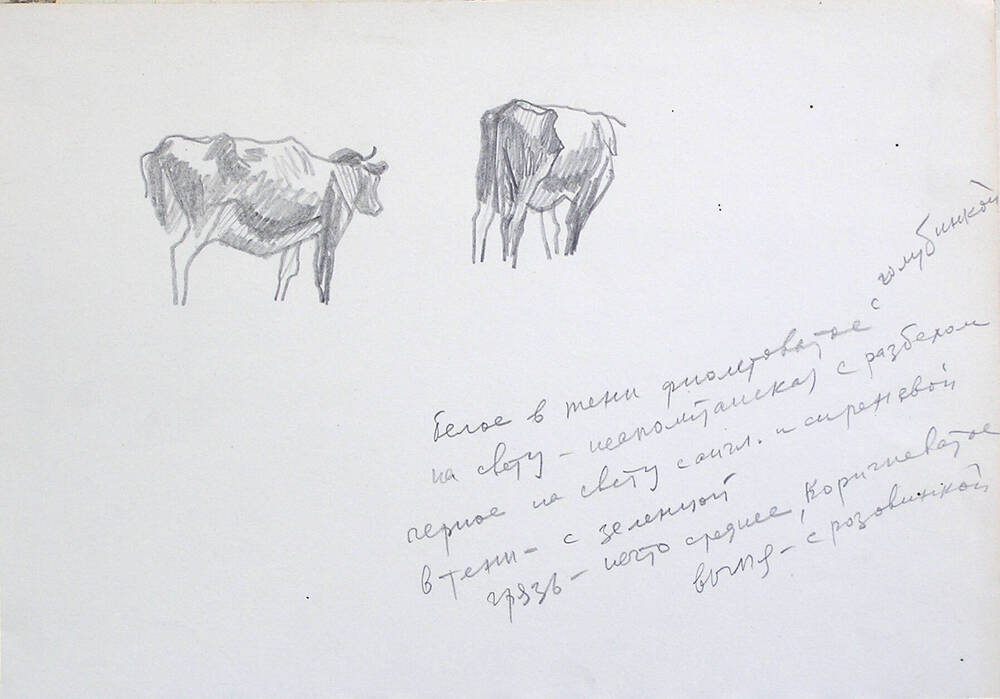 белое в тени фиолетоватое с голубинкой
на свету – неаполитанская с разбелом
черное на свету с англ. и сиреневой
в тени – с зеленцой
грязь – нечто среднее, коричневатое
вымя – с розовинкой